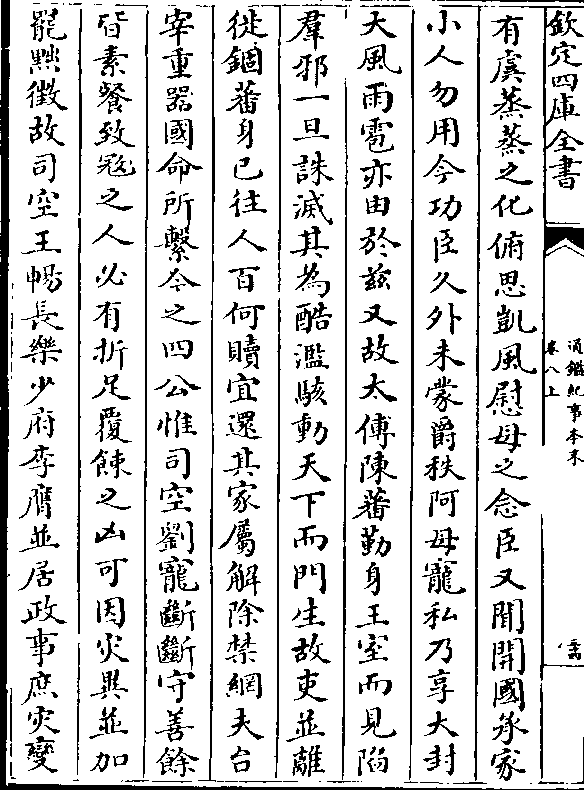 欽定四庫全書
通鑑紀事本末
卷八上
有虞蒸蒸之化俯思凱風慰母之念臣又聞開國承家
小人勿用今功臣久外未蒙爵秩阿母寵私乃享大封
大風雨雹亦由於茲又故太傅陳蕃勤身王室而見陷
羣邪一旦誅滅其為酷濫駭動天下而門生故吏並離
徙錮蕃身已往人百何贖宜還其家屬解除禁網夫台
宰重器國命所繫今之四公惟司空劉寵斷斷守善餘
皆素餐致寇之人必有折足覆餗之凶可因災異並加
罷黜徵故司空王暢長樂少府李膺並居政事庶災變